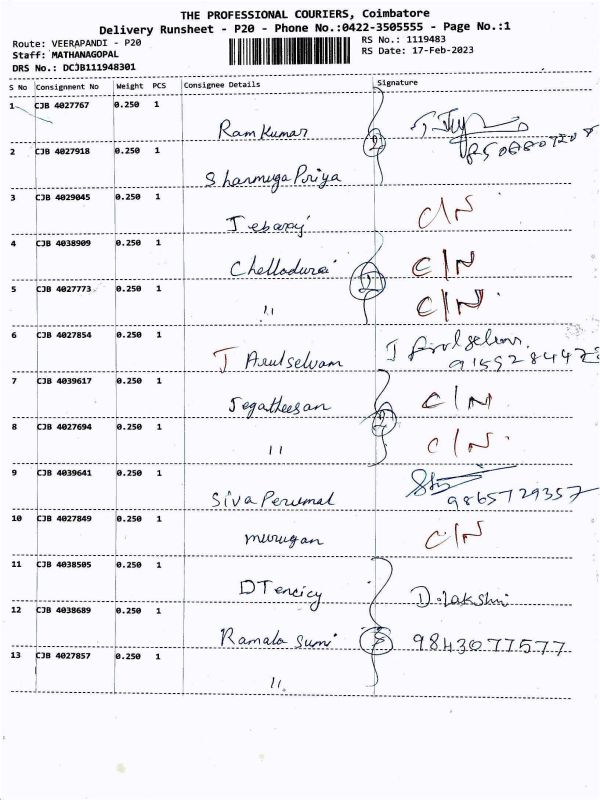 THE PROFESSIONAL COURIERS, Coimbatore
Delivery Runsheet - P20 - Phone No.:0422-3505555 - Page No.:1
Route: VEERAPANDI - P20
RS No.: 1119483
Staff: MATHANAGOPAL
RS Date: 17-Feb-2023
DRS No.: DCJB111948301
S No Consignment No Weight PCS Consignee Details Signature
1 CJB 4027767 0.250 1
Ram Kumar
2 CJB 4027918 0.250 1
Shanmuga Priya
3 CJB 4029045 0.250 1
Jebaraj C/N
4 CJB 4038909 0.250 1
Chelladurai C/N
5 CJB 4027773 0.250 1
11 C/N
6 CJB 4027854 0.250 1
J Arulselvam J Arulselvam
9159284473
7 CJB 4039617 0.250 1
Jegatheesan C/N
8 CJB 4027694 0.250 1
11 C/N
9 CJB 4039641 0.250 1
Siva Perumal 9865729357
10 CJB 4027849 0.250 1
murugan C/N
11 CJB 4038505 0.250 1
DTencicy D.lakshmi
12 CJB 4038689 0.250 1
Ramala Sumi 9843077577
13 CJB 4027857 0.250 1
11